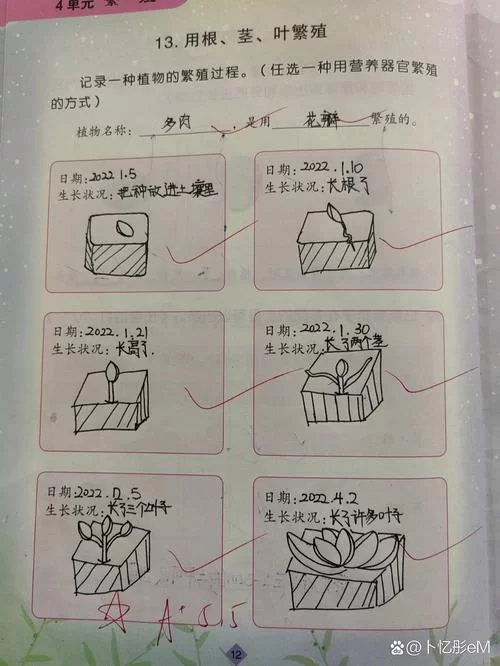 4单元 繁 殖
13. 用根、茎、叶繁殖
记录一种植物的繁殖过程。（任选一种用营养器官繁殖
的方式）
植物名称：多肉，是用花瓣繁殖的。
日期：2022 1.5
生长状况：把种放进土壤里
日期：2022.1.10
生长状况：长根了
日期：2022.1.21
生长状况：长高了
日期：2022.1.30
生长状况：长了两个茎
日期：2022.2.5
生长状况：长了三个叶子
日期：2022.4.2
生长状况：长了许多叶子
A+ 5.15
12
@卜忆彤eM